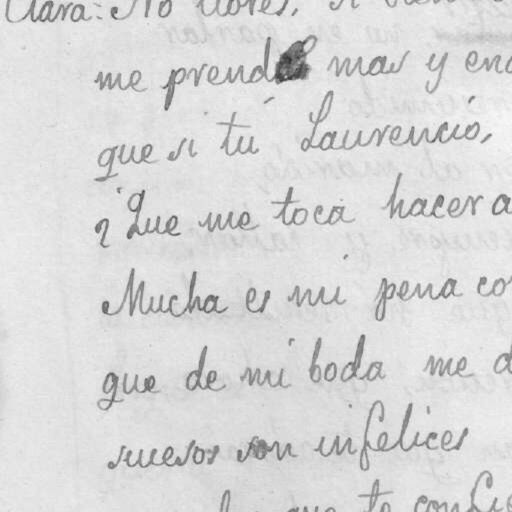 Clara: No llores,
me prend mas y
que si tú Laurencio,
¿Que me toca hacer a
Mucha es mi pena
que de mi boda me d
suesos son infelices
que te